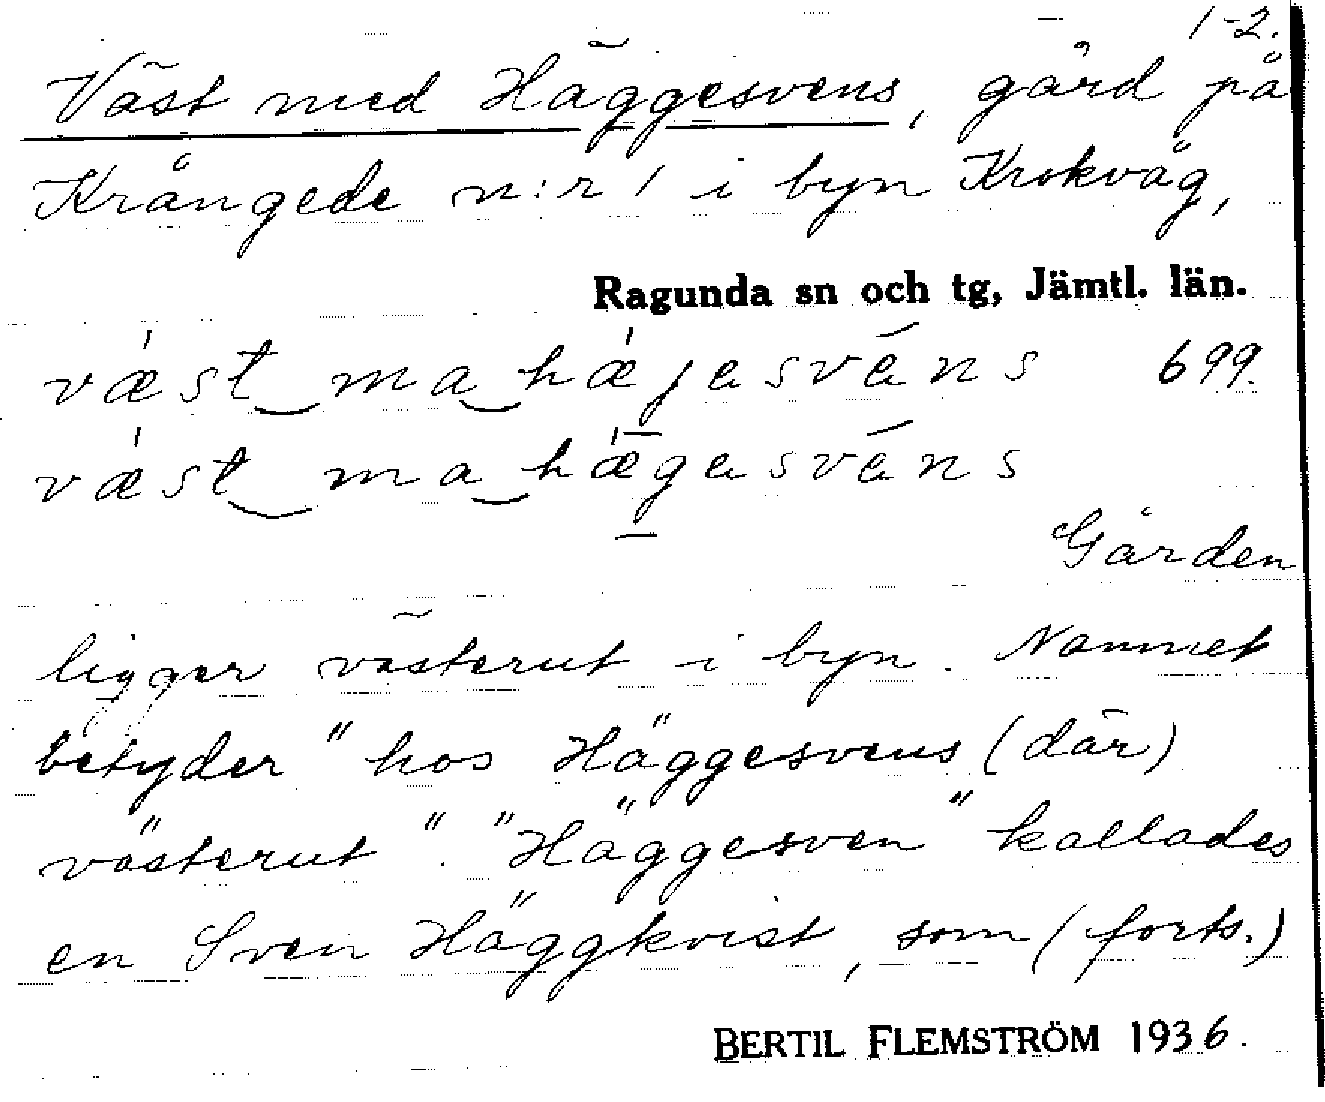 1-2.
Väst med Häggesvens, gård på
Krångede n:r 1 i byn Krokvåg,
Ragunda sn och tg, Jämtl. län.
væst ma hæjesvéns 699.
væst ma hægesvéns
Gården
ligger västerut i byn. Namnet
betyder "hos Häggesvens (där)
västerut". "Häggesven" kallades
en Sven Häggkvist, som (forts.)
BERTIL FLEMSTRÖM 1936.